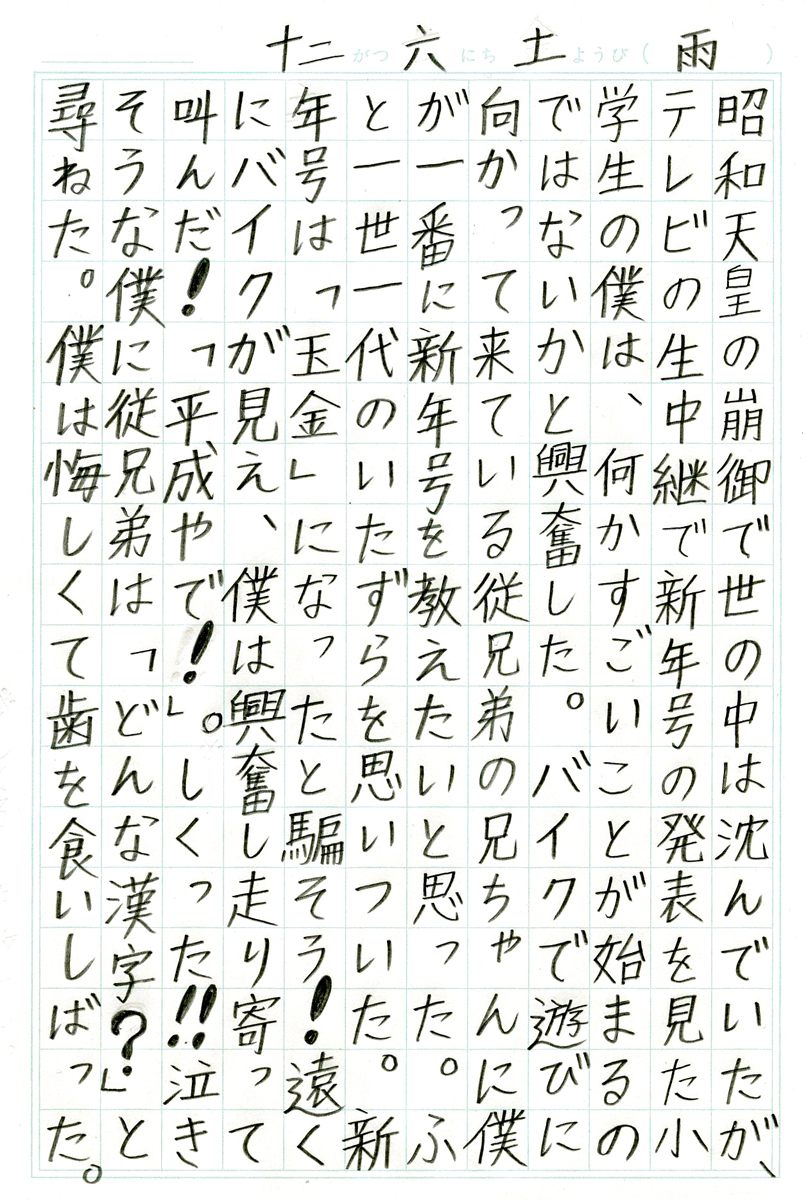 十二がつ六にち土ようび（雨）
昭和天皇の崩御で世の中は沈んでいたが、
テレビの生中継で新年号の発表を見た小
学生の僕は、何かすごいことが始まるの
ではないかと興奮した。バイクで遊びに
向かって来ている従兄弟の兄ちゃんに僕
が一番に新年号を教えたいと思った。ふ
と一世一代のいたずらを思いついた。新
年号は「玉金」になったと騙そう！遠く
にバイクが見え、僕は興奮し走り寄って
叫んだ！「平成やで！」。しくった！！泣き
そうな僕に従兄弟は「どんな漢字？」と
尋ねた。僕は悔しくて歯を食いしばった。